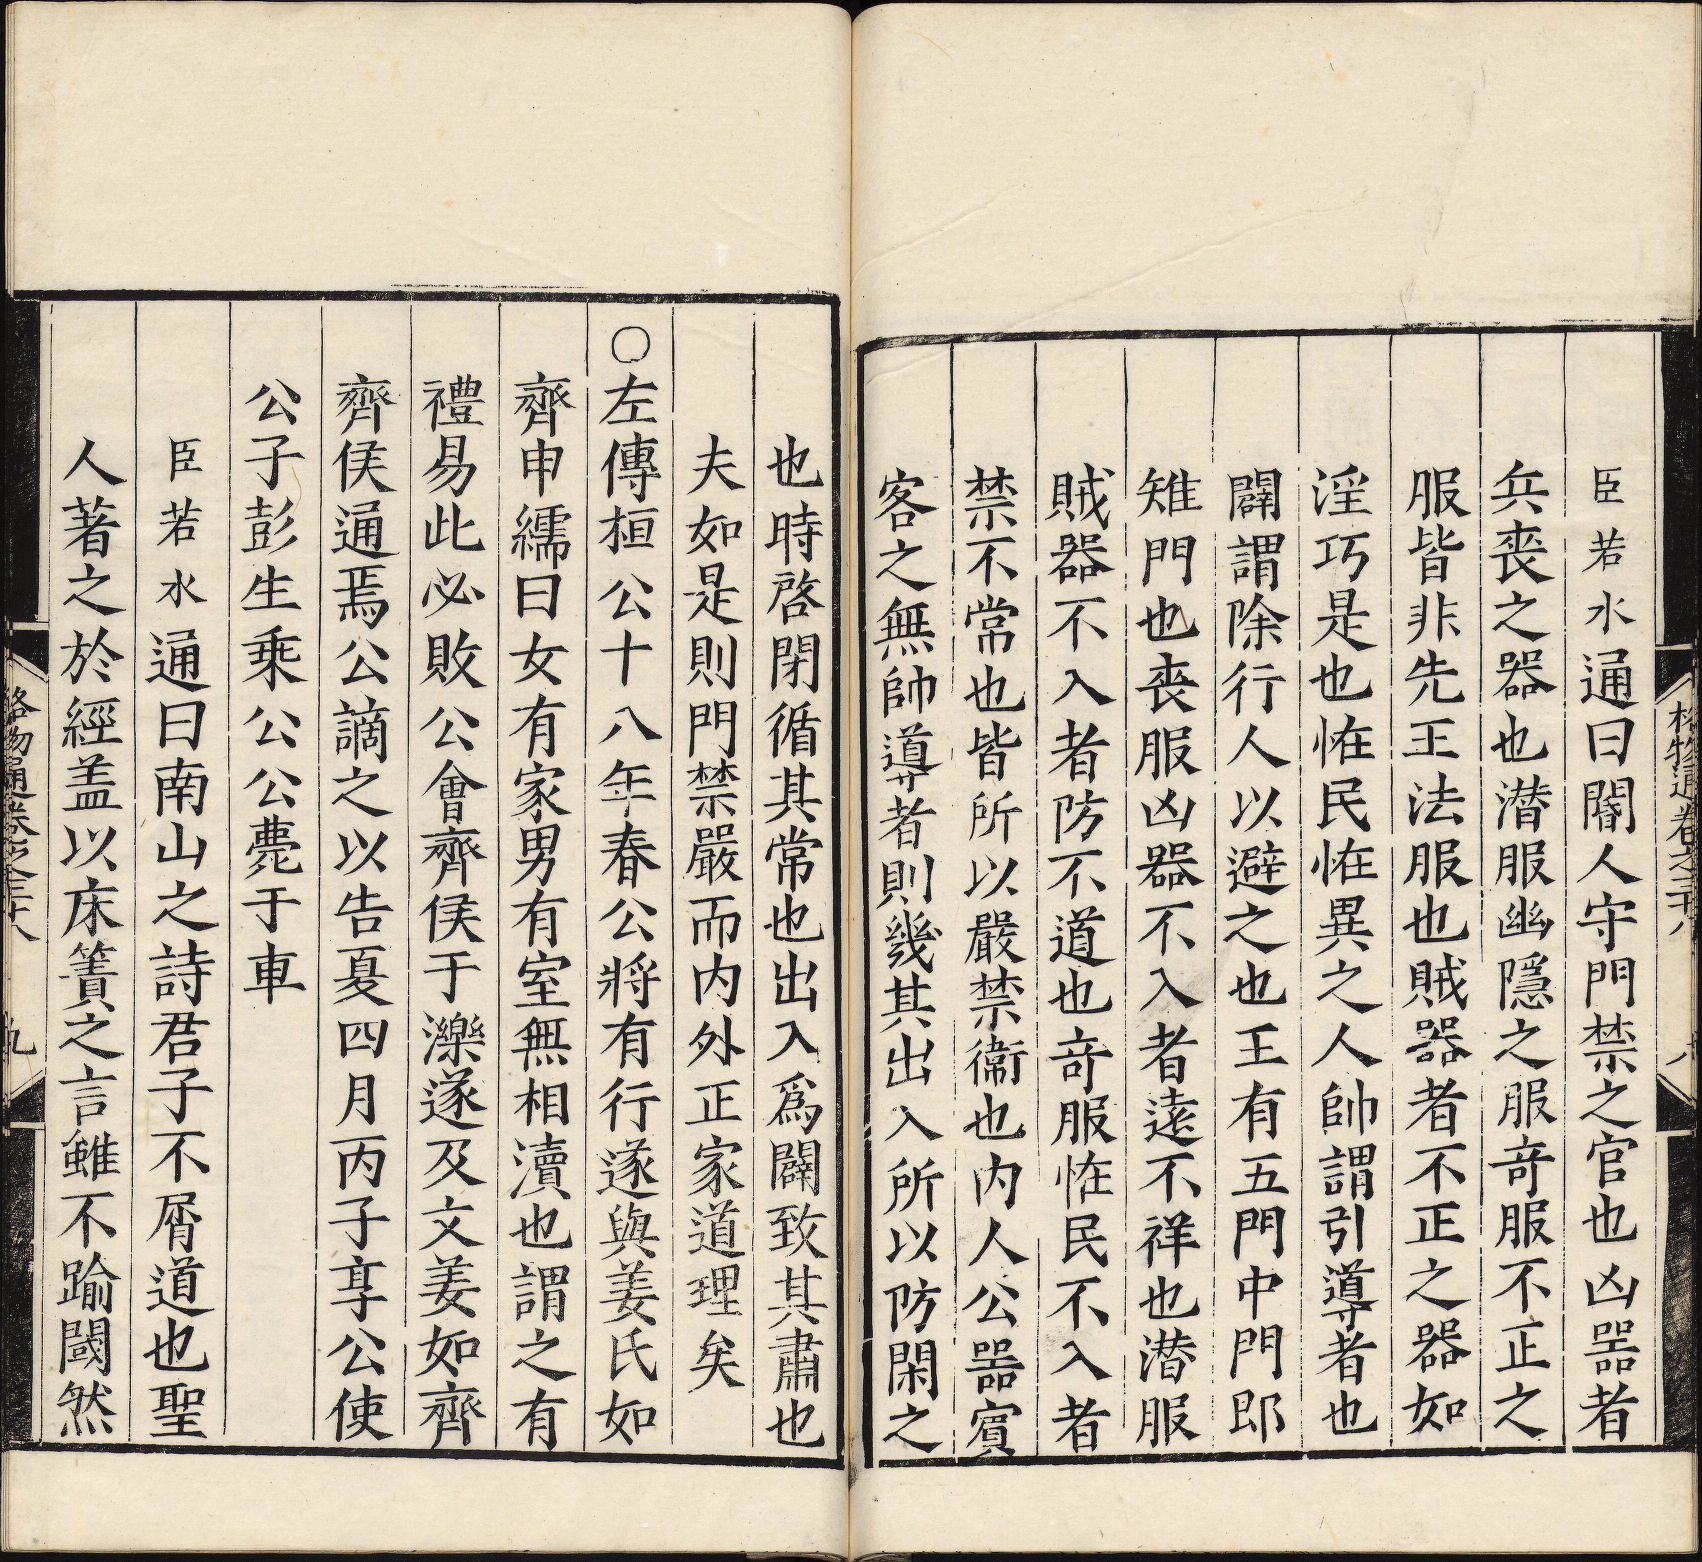 臣若水通曰閽人守門禁之官也凶噐者
兵喪之器也潜服幽隱之服竒服不正之
服皆非先王法服也賊器者不正之器如
淫巧是也恠民恠異之人帥謂引導者也
闢謂除行人以避之也王有五門中門郎
雉門也喪服凶器不入者遠不祥也潜服
賊器不入者防不道也竒服恠民不入者
禁不常也皆所以嚴禁衛也内人公噐賔
客之無帥導者則幾其出入所以防閑之
也時啓閉循其常也出入爲闢致其肅也
夫如是則門禁嚴而内外正家道理矣
○左傳桓公十八年春公將有行遂與姜氏如
齊申繻曰女有家男有室無相瀆也謂之有
禮易此必敗公會齊侯于濼遂及文姜如齊
齊侯通焉公謫之以告夏四月丙子享公使
公子彭生乘公公薨于車
臣若水通曰南山之詩君子不屑道也聖
人著之於經盖以床簀之言雖不踰閾然
格物通卷之三十八 八
格物通卷之三十八 九